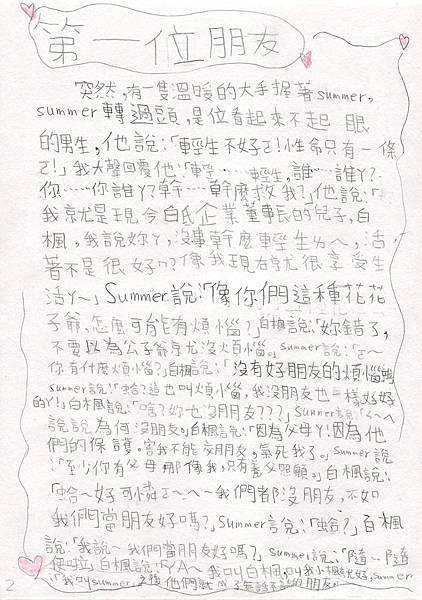 第一位朋友
突然,有一隻溫暖的大手握著summer,
summer轉過頭,是位看起來不起 眼
的男生,他說:「輕生不好ㄛ!性命只有一條
ㄛ!」我大聲回覆他:「輕……輕生,誰…誰ㄚ?
你……你誰ㄚ?幹…幹麼救我?」他說:「
我就是現今白氏企業董事長的兒子,白
楓,我說妳ㄚ,沒事幹麼輕生ㄌㄟ,活
著不是很好ㄇ?像我現在就很享受生
活ㄚ~」Summer說:「像你們這種花花
子爺,怎麼可能有煩惱?」白楓說:「妳錯了,
不要以為公子爺就沒煩惱。」summer說:「ㄛ~
你有什麼煩惱?」白楓說:「沒有好朋友的煩惱
summer說:「蛤?這也叫煩惱,我沒朋友也一樣好好
的ㄚ!」白楓說:「啥?妳也沒朋友???」summer說:「
說說為何沒朋友。」白楓說:「因為父母ㄚ!因為他
們的保護。害我不能交朋友,氣死我了。」summer說
:「至少你有父母那像我,只有養父照顧。」白楓說:
「蛤~好可憐ㄛ~ㄟ~我們都沒朋友,不如
我們當朋友好嗎?」summer說:「蛤?」白楓
說:「我說~我們當朋友好嗎?」summer說:「隨…隨
便啦」白楓說:「YA~我叫白楓,叫我小楓就好,summer
:「我叫summer。」之後他們就成了無話不談的朋友。
2